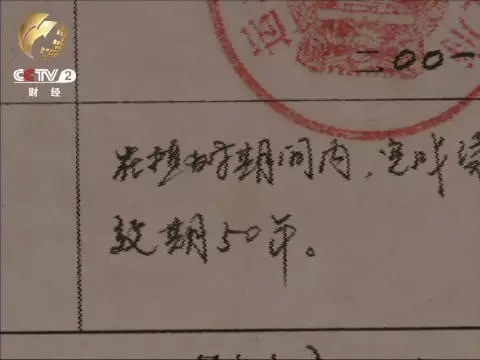 CCTV 2
财经
二00一
在植树期间内，完成
效期50年。